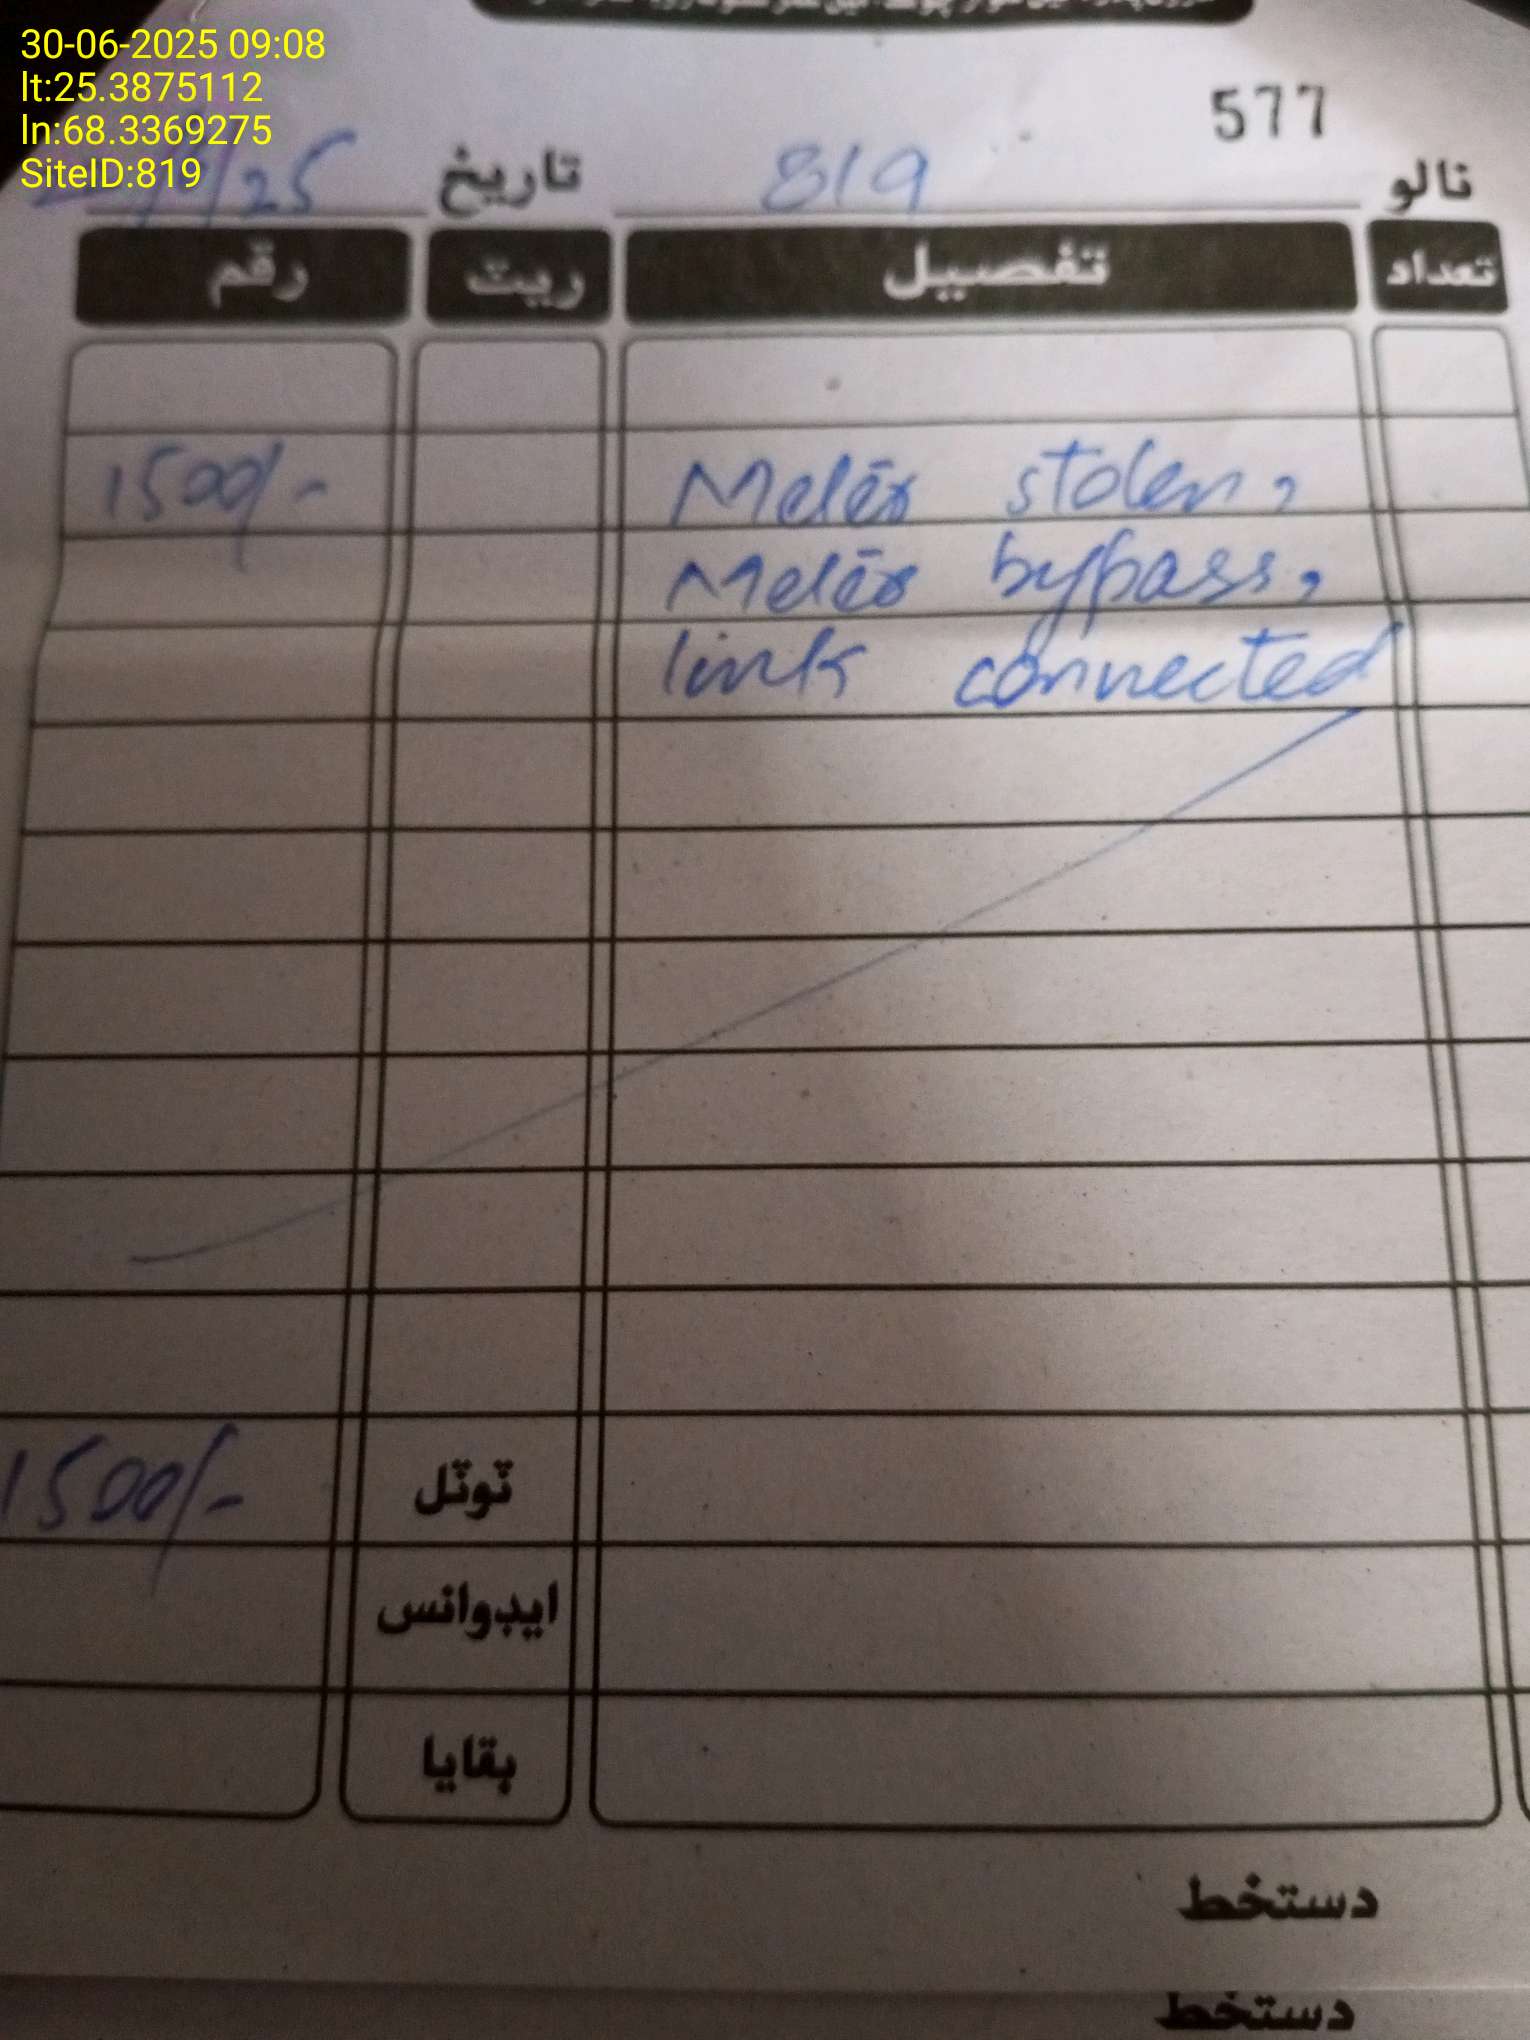 30-06-2025 09:08
lt:25.3875112
ln:68.3369275
SiteID:819
577
نالو 819 تاريخ /25
تعداد تفصيل ريٽ رقم
Meter stolen, 1500/-
Meter bypass,
link connected
ٽوٽل 1500/-
ايڊوانس
بقايا
دستخط
دستخط